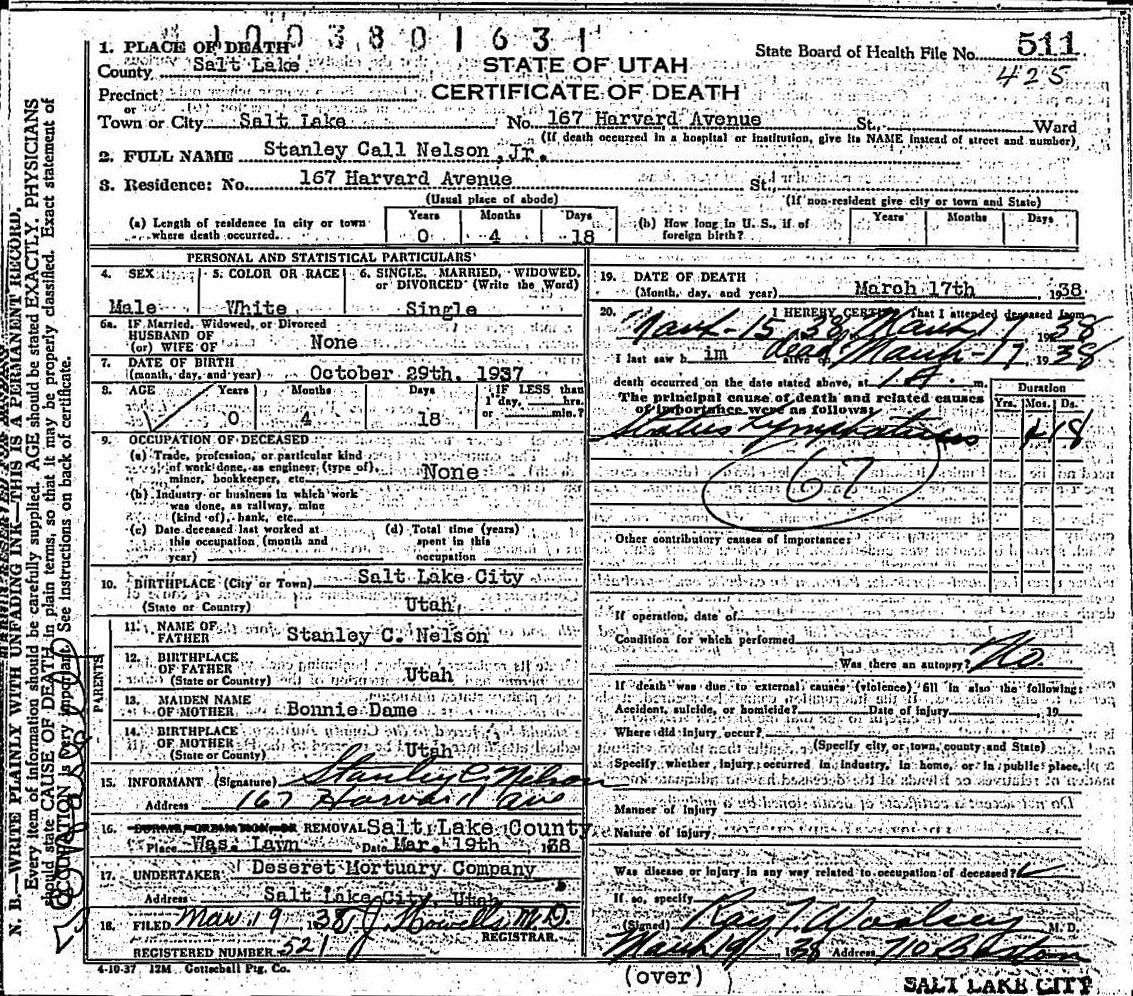 1003801631
1. PLACE OF DEATH
County Salt Lake
STATE OF UTAH
State Board of Health File No. 511
425
Precinct
CERTIFICATE OF DEATH
or
Town or City Salt Lake No. 167 Harvard Avenue St., Ward
(If death occurred in a hospital or institution, give its NAME instead of street and number)
2. FULL NAME Stanley Call Nelson, Jr.
3. Residence: No. 167 Harvard Avenue St.,
(Usual place of abode) (If non-resident give city or town and State)
(a) Length of residence in city or town where death occurred. Years 0 Months 4 Days 18
(b) How long in U. S., if of foreign birth? Years Months Days
PERSONAL AND STATISTICAL PARTICULARS
4. SEX 5. COLOR OR RACE 6. SINGLE, MARRIED, WIDOWED, or DIVORCED (Write the Word)
Male White Single
6a. IF Married, Widowed, or Divorced
HUSBAND OF
(or) WIFE OF None
7. DATE OF BIRTH
(month, day, and year) October 29th, 1937
8. AGE Years Months Days IF LESS than
1 day, hrs.
or min.?
0 4 18
9. OCCUPATION OF DECEASED
(a) Trade, profession, or particular kind
of work done, as engineer, (type of),
miner, bookkeeper, etc. None
(b) Industry or business in which work
was done, as railway, mine
(kind of), bank, etc.
(c) Date deceased last worked at
this occupation (month and
year)
(d) Total time (years)
spent in this
occupation
10. BIRTHPLACE (City or Town) Salt Lake City
(State or Country) Utah
PARENTS
11. NAME OF
FATHER Stanley C. Nelson
12. BIRTHPLACE
OF FATHER
(State or Country) Utah
13. MAIDEN NAME
OF MOTHER Bonnie Dame
14. BIRTHPLACE
OF MOTHER
(State or Country) Utah
15. INFORMANT (Signature) Stanley C. Nelson
Address 167 Harvard Ave
16. BURIAL, CREMATION, OR REMOVAL Salt Lake County
Place Was. Lawn Date Mar. 19th 1938
17. UNDERTAKER Deseret Mortuary Company
Address Salt Lake City, Utah
18. FILED Mar 19 1938 J Howells M.D.
REGISTRAR.
REGISTERED NUMBER 521
4-10-37 12M Gottschall Ptg. Co.
19. DATE OF DEATH
(Month, day, and year) March 17th, 1938
20. I HEREBY CERTIFY That I attended deceased from
March 15 38, March 17 1938
I last saw him dead March 17 1938
death occurred on the date stated above, at m.
The principal cause of death and related causes
of importance were as follows:
Duration
Yrs. Mos. Ds.
Status Lymphaticus 4 18
67
Other contributory causes of importance:
If operation, date of
Condition for which performed
Was there an autopsy? No.
If death was due to external causes (violence) fill in also the following:
Accident, suicide, or homicide? Date of injury, 19
Where did injury occur?
(Specify city or town, county and State)
Specify whether injury occurred in industry, in home, or in public place,
Manner of injury
Nature of injury
Was disease or injury in any way related to occupation of deceased?
If so, specify
(Signed) Ray T. Woolsey M. D.
March 19 1938 Address
(over)
SALT LAKE CITY
N. B.—WRITE PLAINLY WITH UNFADING INK—THIS IS A PERMANENT RECORD.
Every item of information should be carefully supplied. AGE should be stated EXACTLY. PHYSICIANS
should state CAUSE OF DEATH in plain terms, so that it may be properly classified. Exact statement of
OCCUPATION is very important. See instructions on back of certificate.